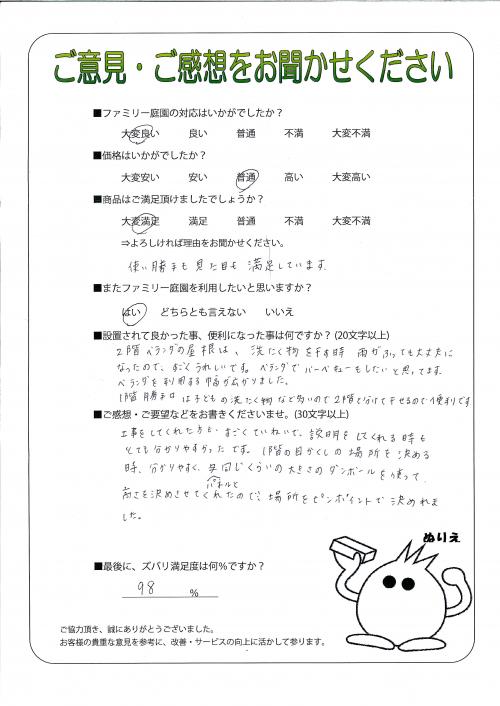 ご意見・ご感想をお聞かせください
■ファミリー庭園の対応はいかがでしたか？
大変良い 良い 普通 不満 大変不満
■価格はいかがでしたか？
大変安い 安い 普通 高い 大変高い
■商品はご満足頂けましたでしょうか？
大変満足 満足 普通 不満 大変不満
⇒よろしければ理由をお聞かせください。
使い勝手も見た目も満足しています。
■またファミリー庭園を利用したいと思いますか？
はい どちらとも言えない いいえ
■設置されて良かった事、便利になった事は何ですか？(20文字以上)
2階ベランダの屋根は、洗たく物を干す時雨がふっても大丈夫に
なったので、すごくうれしいです。ベランダでバーベキューもしたいと思ってます。
ベランダを利用する幅が広がりました。
1階勝手口は子どもの洗たく物など多いので2階と分けて干せるので便利です
■ご感想・ご要望などをお書きくださいませ。(30文字以上)
工事をしてくれた方も、すごくていねいで、説明をしてくれる時も
とても分かりやすかったです。1階の目かくしの場所を決める
時、分かりやすく、同じくらいの大きさのダンボールを使って
パネルと
高さを決めさせてくれたので、場所をピンポイントで決めれま
した。
■最後に、ズバリ満足度は何％ですか？
98 ％
ぬりえ
ご協力頂き、誠にありがとうございました。
お客様の貴重な意見を参考に、改善・サービスの向上に活かして参ります。